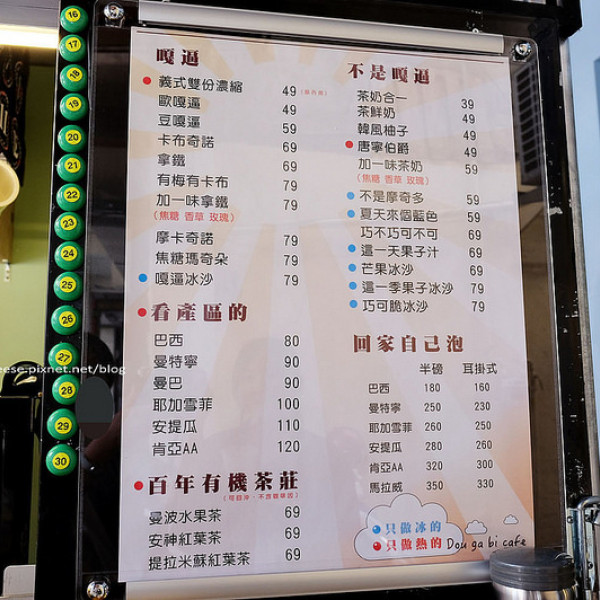 嘎逼
義式雙份濃縮 49
歐嘎逼 49
豆嘎逼 59
卡布奇諾 69
拿鐵 69
有梅有卡布 79
加一味拿鐵 79
(焦糖 香草 玫瑰)
摩卡奇諾 79
焦糖瑪奇朵 79
嘎逼冰沙 79
看產區的
巴西 80
曼特寧 90
曼巴 90
耶加雪菲 100
安提瓜 110
肯亞AA 120
百年有機茶莊
曼波水果茶 69
安神紅葉茶 69
提拉米蘇紅葉茶 69
不是嘎逼
茶奶合一 39
茶鮮奶 49
韓風柚子 49
唐寧伯爵 49
加一味茶奶 59
(焦糖 香草 玫瑰)
不是摩奇多 59
夏天來個藍色 59
巧不巧可不可 69
這一天果子汁 69
芒果冰沙 69
這一季果子冰沙 79
巧可脆冰沙 79
回家自己泡
半磅 耳掛式
巴西 180 160
曼特寧 250 230
耶加雪菲 260 250
安提瓜 280 260
肯亞AA 320 300
馬拉威 350 330
只做冰的
只做熱的 Dou ga bi cafe
16
17
18
19
20
21
22
23
24
25
26
27
28
29
30
ese.pixnet.net/blog